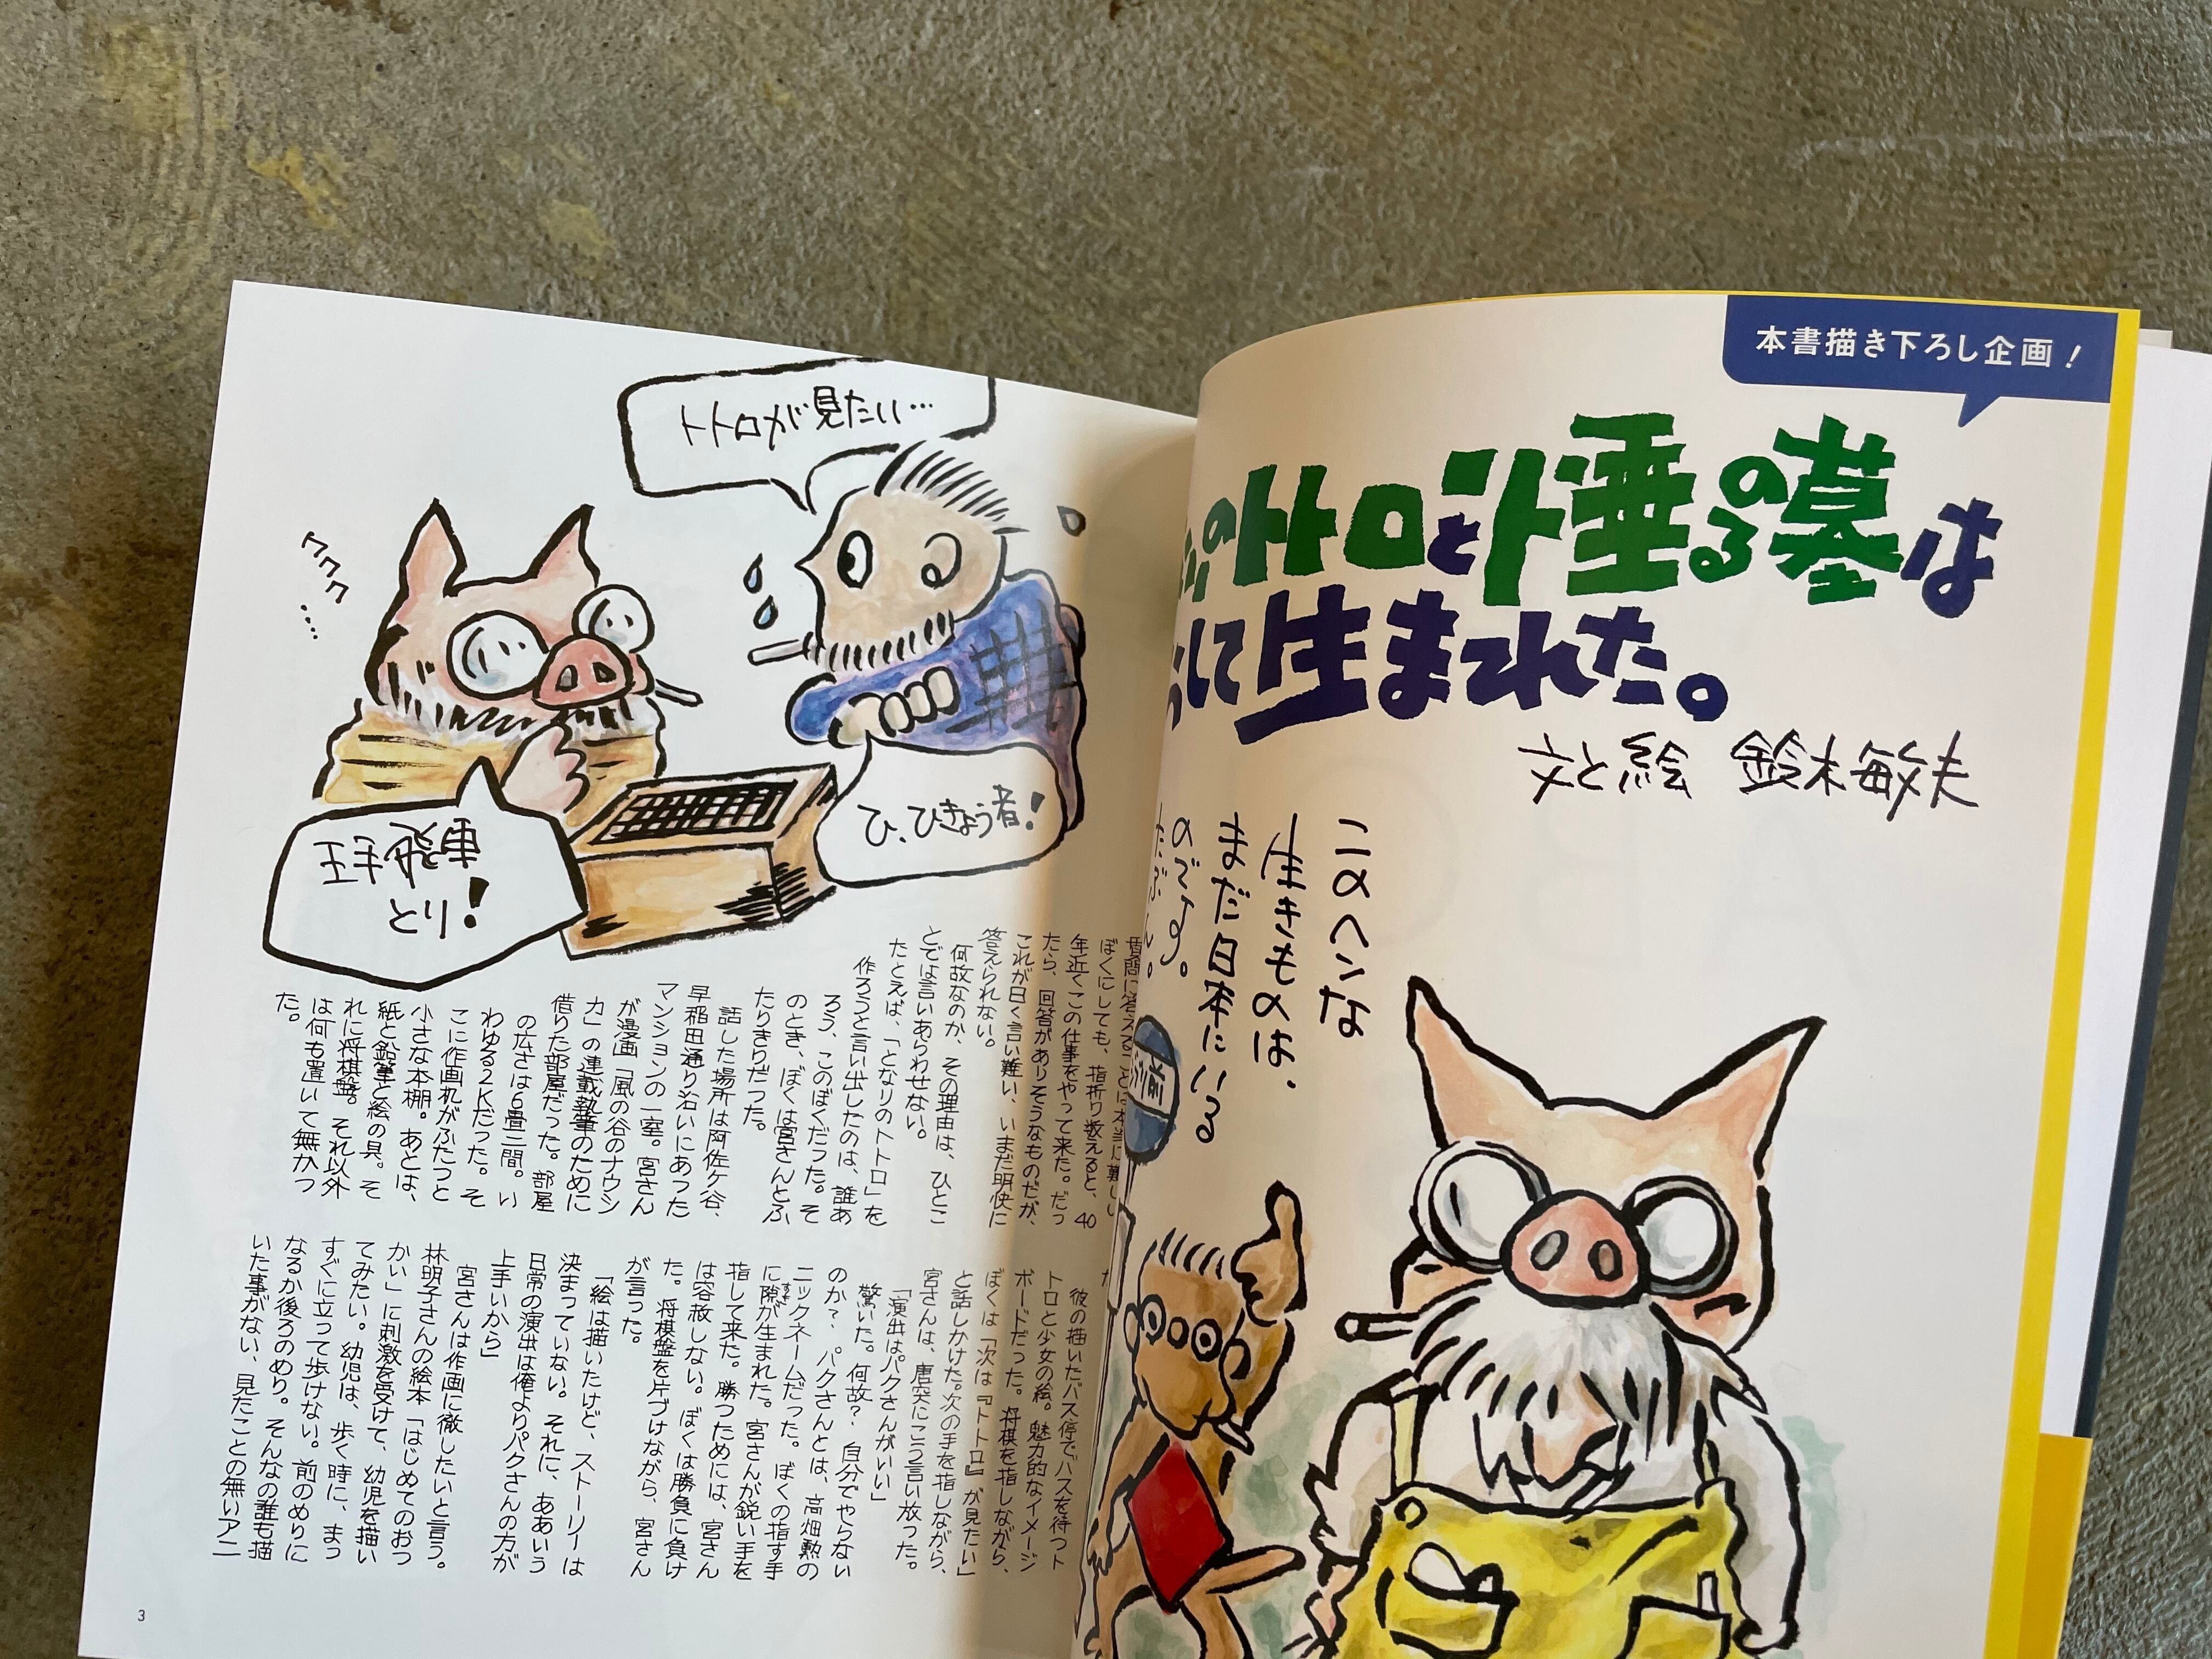 本書描き下ろし企画！
のトトロと火垂るの墓は
して生まれた。
文と絵 鈴木敏夫
このヘンな
生きものは、
まだ日本にいる
のです。
たぶん。
トトロが見たい…
ククク…
ひ、ひきょう者！
王手飛車
とり！
質問に答えることは本当に難しい
ぼくにしても、指折り数えると、40
年近くこの仕事をやって来た。だっ
たら、回答がありそうなものだが、
これが曰く言い難い、いまだ明快に
答えられない。
何故なのか、その理由は、ひとこ
とでは言いあらわせない。
たとえば、「となりのトトロ」を
作ろうと言い出したのは、誰あ
ろう、このぼくだった。そ
のとき、ぼくは宮さんとふ
たりきりだった。
話した場所は阿佐ヶ谷、
早稲田通り沿いにあった
マンションの一室。宮さん
が漫画「風の谷のナウシ
カ」の連載執筆のために
借りた部屋だった。部屋
の広さは6畳二間。い
わゆる2Kだった。そ
こに作画机がふたつと
小さな本棚。あとは、
紙と鉛筆と絵の具。そ
れに将棋盤。それ以外
は何も置いて無かっ
た。
彼の描いたバス停でバスを待つト
トロと少女の絵。魅力的なイメージ
ボードだった。将棋を指しながら、
ぼくは「次は『トトロ』が見たい」
と話しかけた。次の手を指しながら、
宮さんは、唐突にこう言い放った。
「演出はパクさんがいい」
驚いた。何故？自分でやらない
のか？パクさんとは、高畑勲の
ニックネームだった。ぼくの指す手
に隙が生まれた。宮さんが鋭い手を
指して来た。勝つためには、宮さん
は容赦しない。ぼくは勝負に負け
た。将棋盤を片づけながら、宮さん
が言った。
「絵は描いたけど、ストーリーは
決まっていない。それに、ああいう
日常の演出は俺よりパクさんの方が
上手いから」
宮さんは作画に徹したいと言う。
林明子さんの絵本「はじめてのおつ
かい」に刺激を受けて、幼児を描い
てみたい。幼児は、歩く時に、まっ
すぐに立って歩けない。前のめりに
なるか後ろのめり。そんなの誰も描
いた事がない、見たことの無いアニ
3